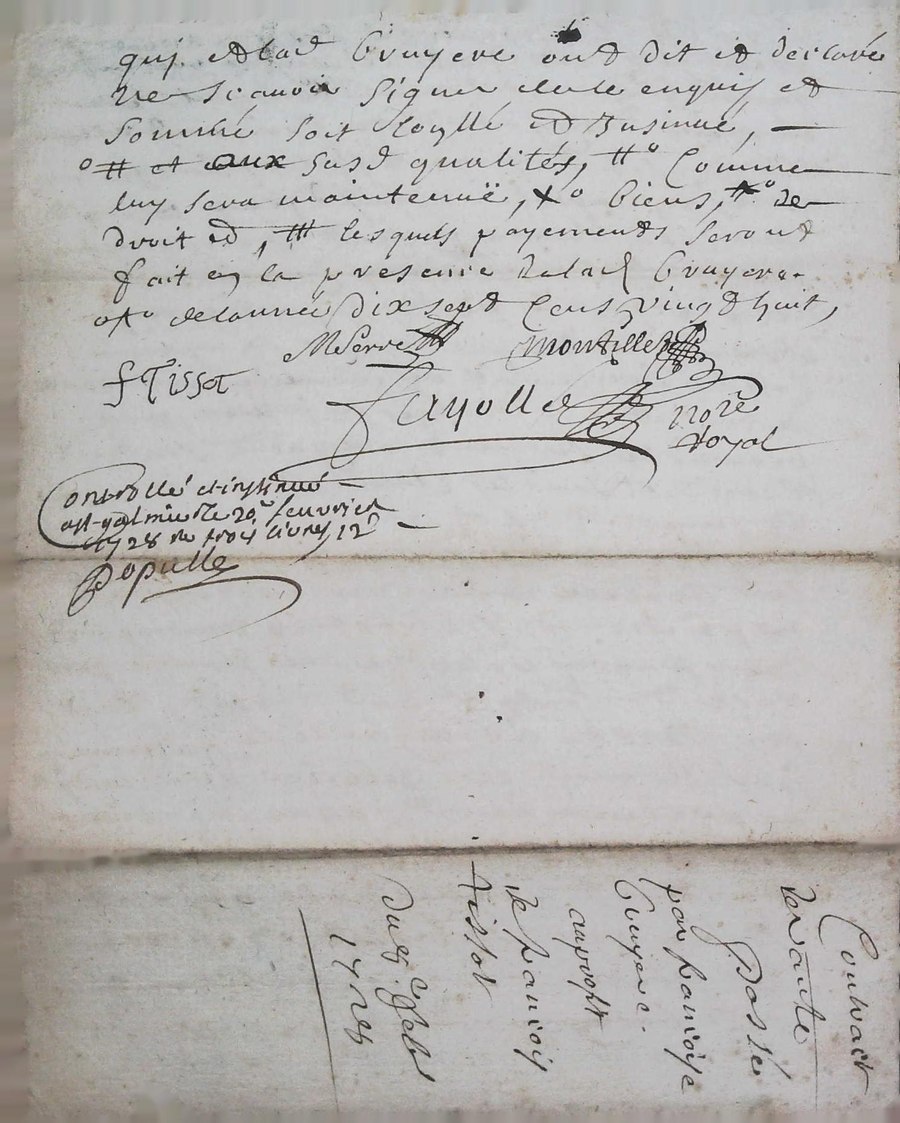 quj et lad Bruyere ont dit et declaré
ne scavoir signer de le enquis et
sommé soit scyllé et Insinué,
et aux susd qualités, Comme
luy sera maintenuë, biens, de
droit et, lesquels payements seront
fait en la presence de lad Bruyere
de lannée Dix sept Cens vingt huit,
MSerre Montillet
f Tissot
fayolle nore
Royal
Controllé et insinué
a st galmier le 20 feuvrier
1728 Re trois livres, 12
Populle
Contract
de vante
passée
par francoise
Bruyere
au proffit
de francois
Tissot
Du
1728